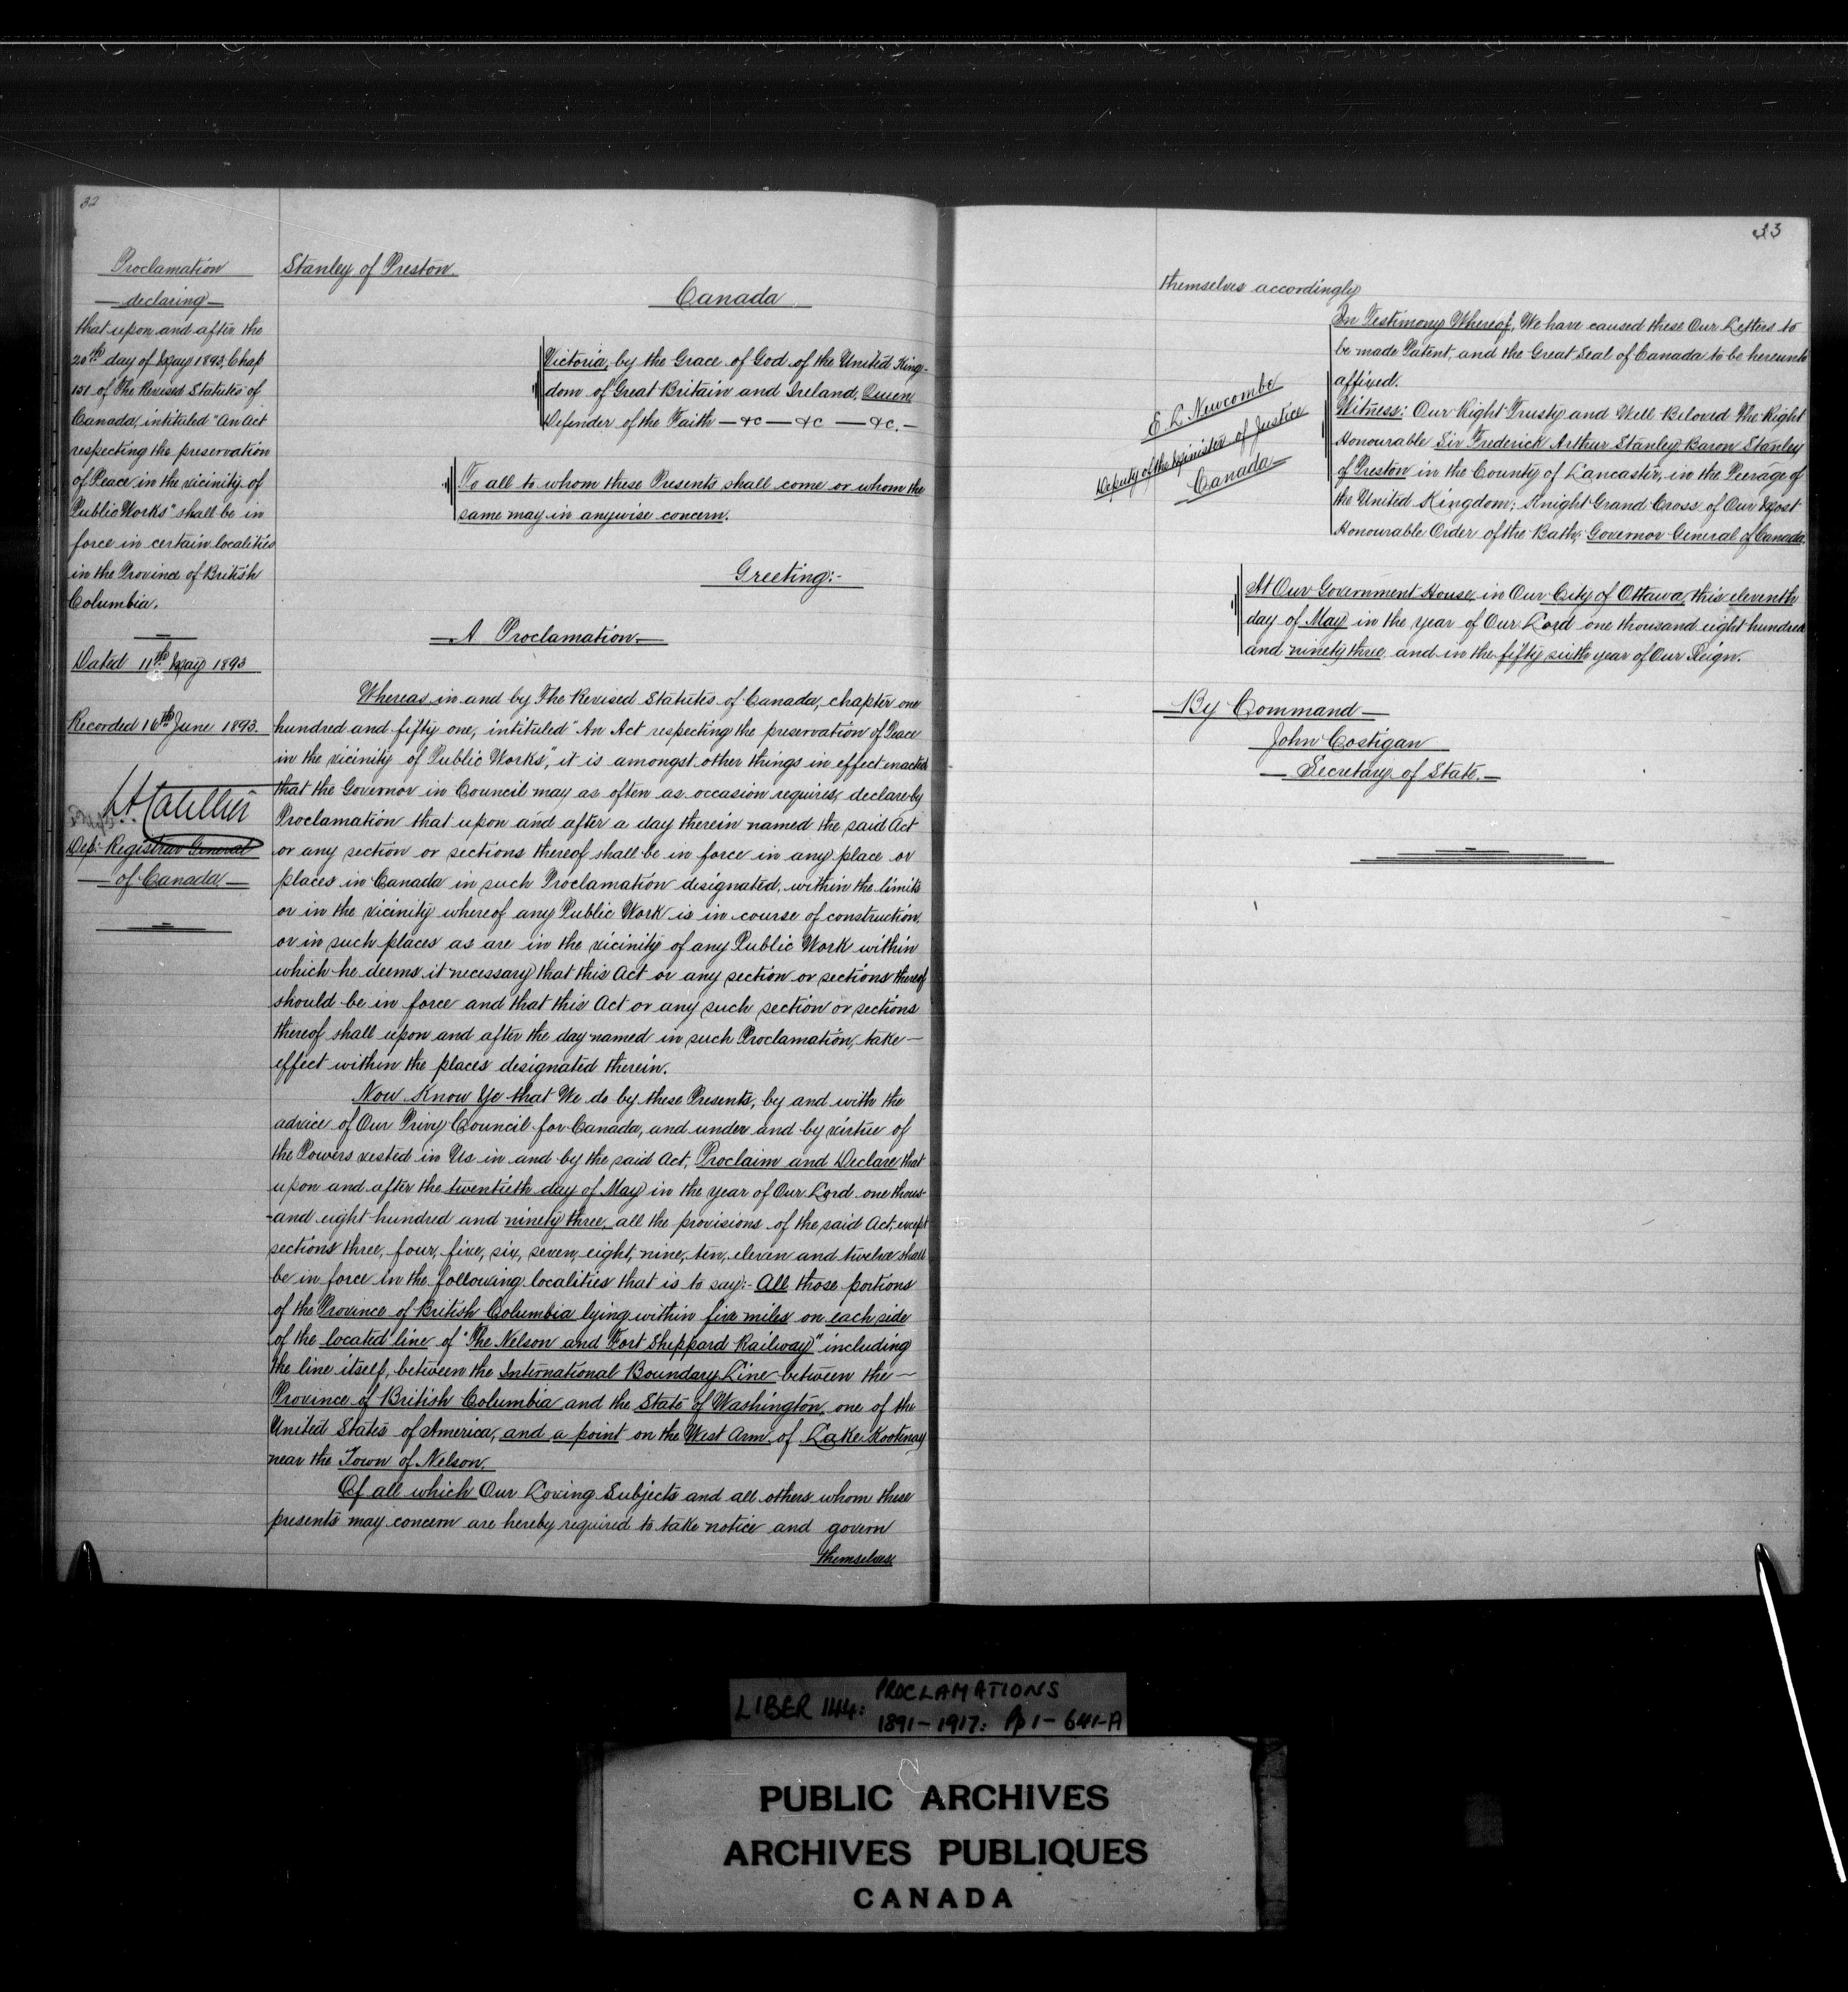 32
Proclamation
declaring
that upon and after the
20th day of May 1893, Chap
151 of The Revised Statutes of
Canada, intituled "An Act
respecting the preservation
of Peace in the vicinity of
Public Works" shall be in
force in certain localities
in the Province of British
Columbia.
Dated 11th May 1893
Recorded 16th June 1893.
Dep: Registrar General
of Canada
Stanley of Preston
Canada
Victoria, by the Grace of God of the United King-
dom of Great Britain and Ireland, Queen
Defender of the Faith — &c — &c — &c. —
To all to whom these Presents shall come or whom the
same may in anywise concern.
Greeting:-
A Proclamation
Whereas in and by The Revised Statutes of Canada, chapter one
hundred and fifty one, intituled "An Act respecting the preservation of Peace
in the vicinity of Public Works", it is amongst other things in effect enacted
that the Governor in Council may as often as occasion requires, declare by
Proclamation that upon and after a day therein named the said Act
or any section or sections thereof shall be in force in any place or
places in Canada in such Proclamation designated, within the limits
or in the vicinity whereof any Public Work is in course of construction,
or in such places as are in the vicinity of any Public Work within
which he deems it necessary that this Act or any section or sections thereof
should be in force and that this Act or any such section or sections
thereof shall upon and after the day named in such Proclamation, take —
effect within the places designated therein.
Now Know Ye that We do by these Presents, by and with the
advice of Our Privy Council for Canada, and under and by virtue of
the Powers vested in Us in and by the said Act, Proclaim and Declare that
upon and after the twentieth day of May in the year of Our Lord one thous-
-and eight hundred and ninety three, all the provisions of the said Act, except
sections three, four, five, six, seven, eight, nine, ten, eleven and twelve shall
be in force in the following localities that is to say:- All those portions
of the Province of British Columbia lying within five miles on each side
of the located line of "The Nelson and Fort Sheppard Railway" including
the line itself, between the International Boundary Line between the —
Province of British Columbia and the State of Washington, one of the
United States of America, and a point on the West Arm of Lake Kootenay
near the Town of Nelson.
Of all which Our Loving Subjects and all others whom these
presents may concern are hereby required to take notice and govern
themselves
33
themselves accordingly
In Testimony Whereof, We have caused these Our Letters to
be made Patent, and the Great Seal of Canada to be hereunto
affixed.
Witness: Our Right Trusty and Well Beloved The Right
Honourable Sir Frederick Arthur Stanley, Baron Stanley
of Preston in the County of Lancaster, in the Peerage of
the United Kingdom; Knight Grand Cross of Our Most
Honourable Order of the Bath; Governor General of Canada.
E. L. Newcombe
Deputy of the Minister of Justice
Canada
At Our Government House, in Our City of Ottawa, this eleventh
day of May in the year of Our Lord one thousand eight hundred
and ninety three, and in the fifty sixth year of Our Reign.
By Command —
John Costigan
Secretary of State.
LIBER 144: PROCLAMATIONS
1891-1917: Pp 1-641-A
PUBLIC ARCHIVES
ARCHIVES PUBLIQUES
CANADA